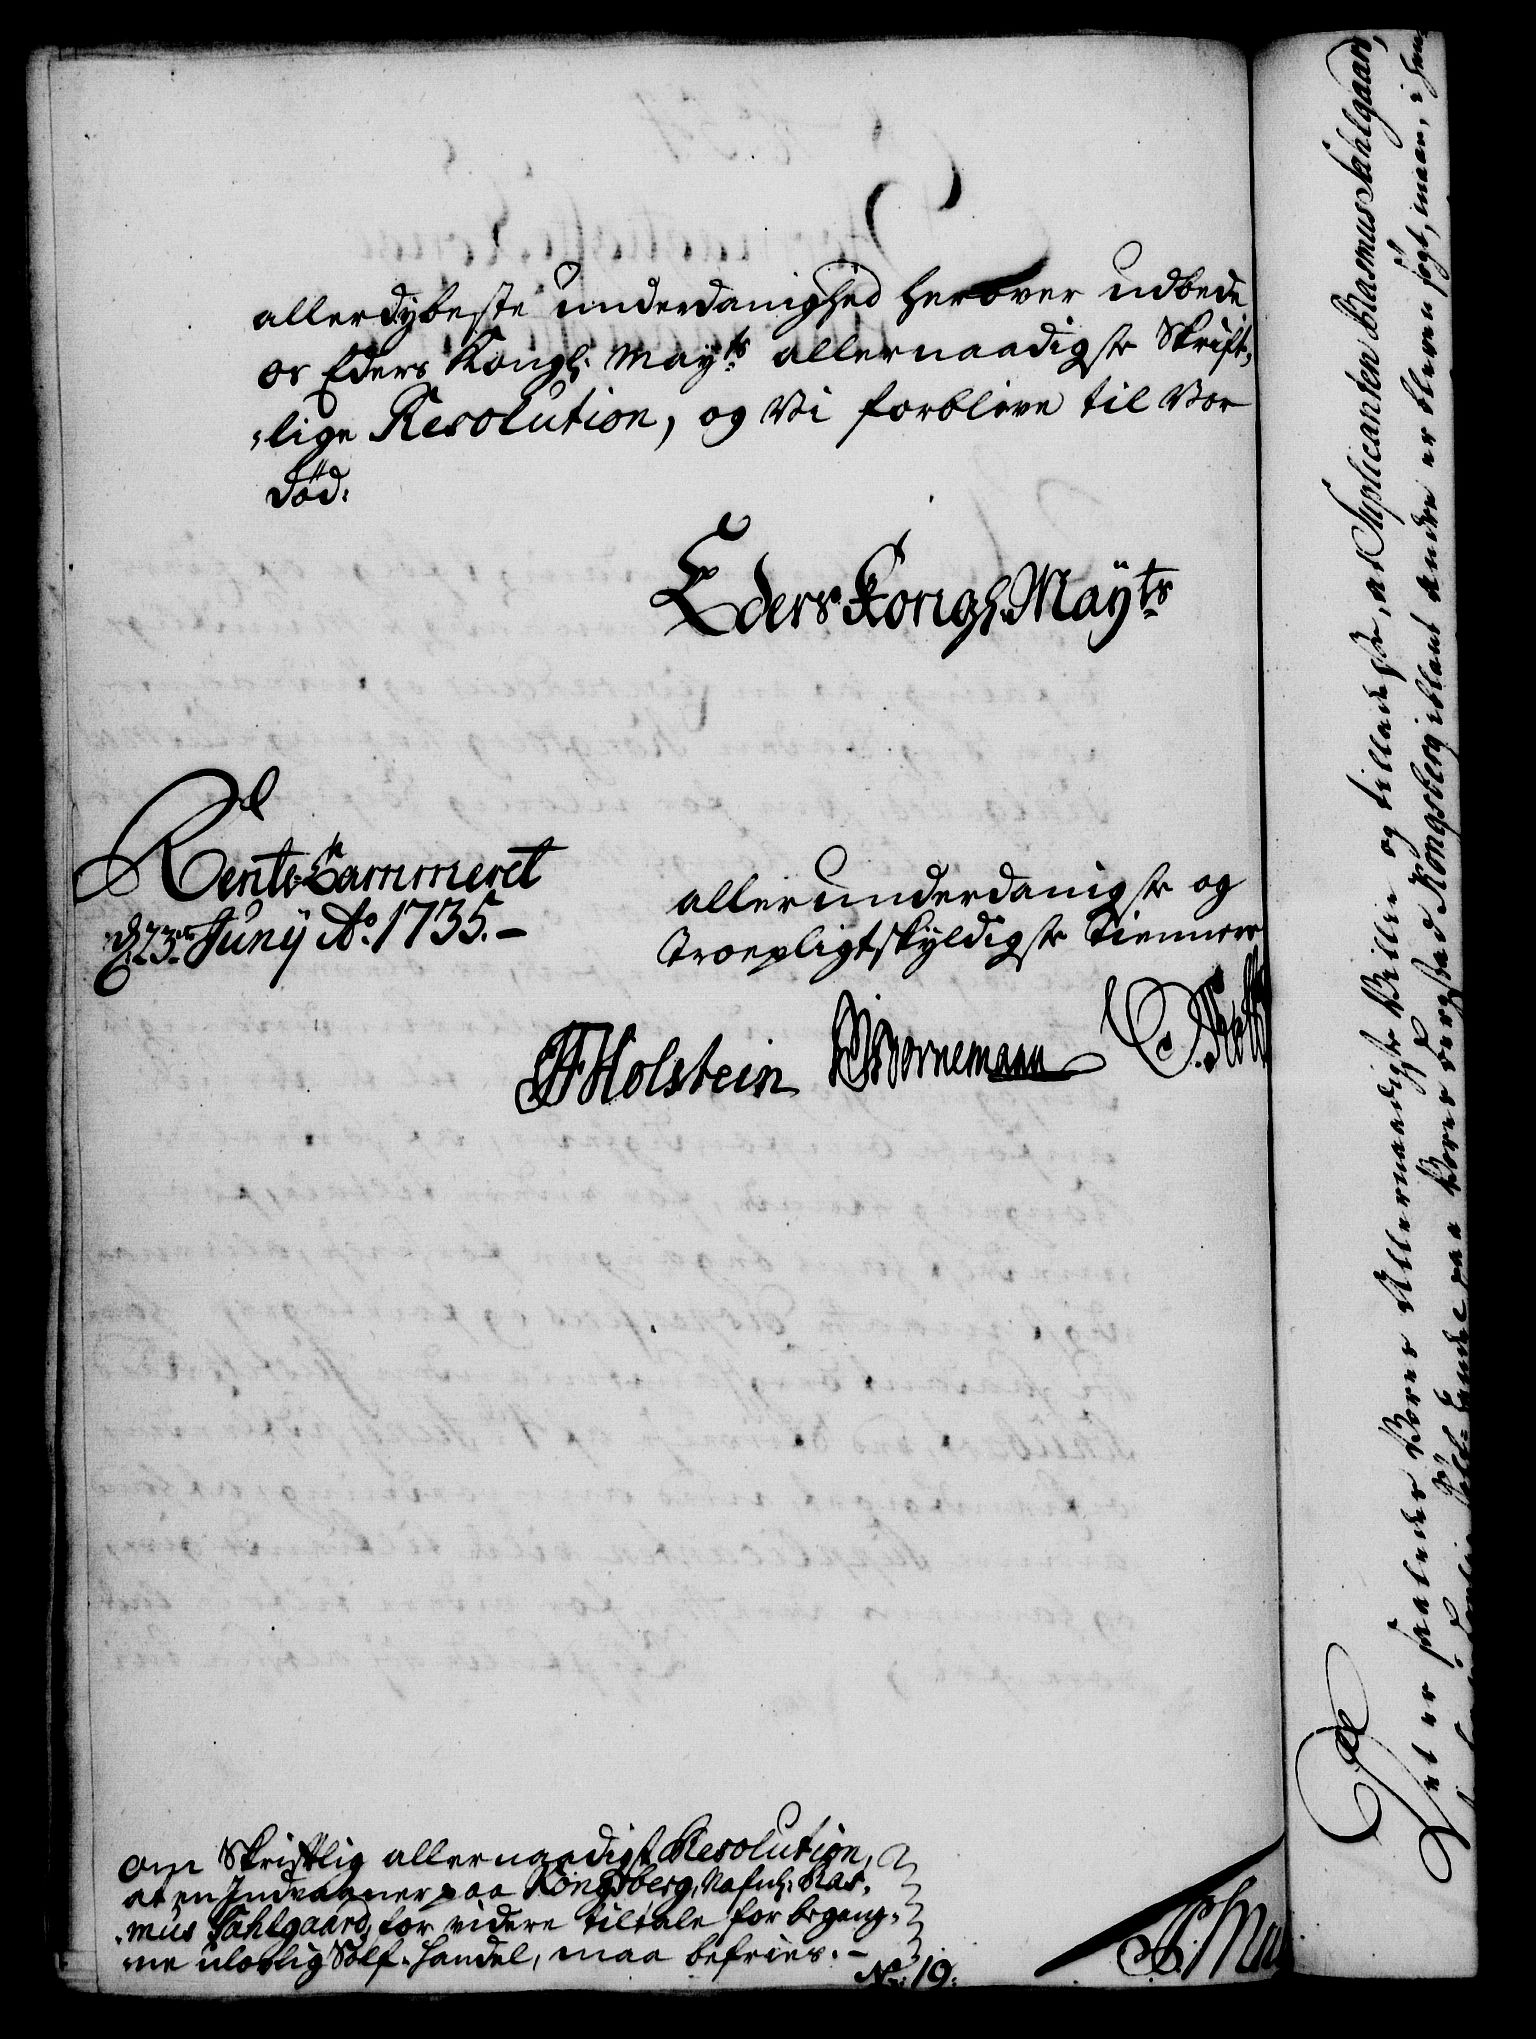 allerdybeste underdanighed herover udbede
os Eders Kongl: Mayts allernaadigste Skrift,
,lige Resolution, og Vi forblive til Vor
Død:
Eders Kongl. Mayts
Rente Cammeret
d: 23de Juny Ao. 1735.-
allerunderdanigste og
troepligtskyldigste Tiennere
Holstein Bornemann
om Skriftlig allernaadigst Resolution,
at en Indvaaner paa Kongsberg, Nafnl: Ras,
,mus Sahlgaard, for videre tiltale for begang,
,ne ulovlig Sølf-Handel, maa befries.-
No: 19:
Det er saaledes Vores Allernaadigste Villie og tilladelse, at Suplicanten Rasmus Sahlgaard,
paa Vores Bergstad Kongsberg iblant andre er bleven søgt, maae, i hen,